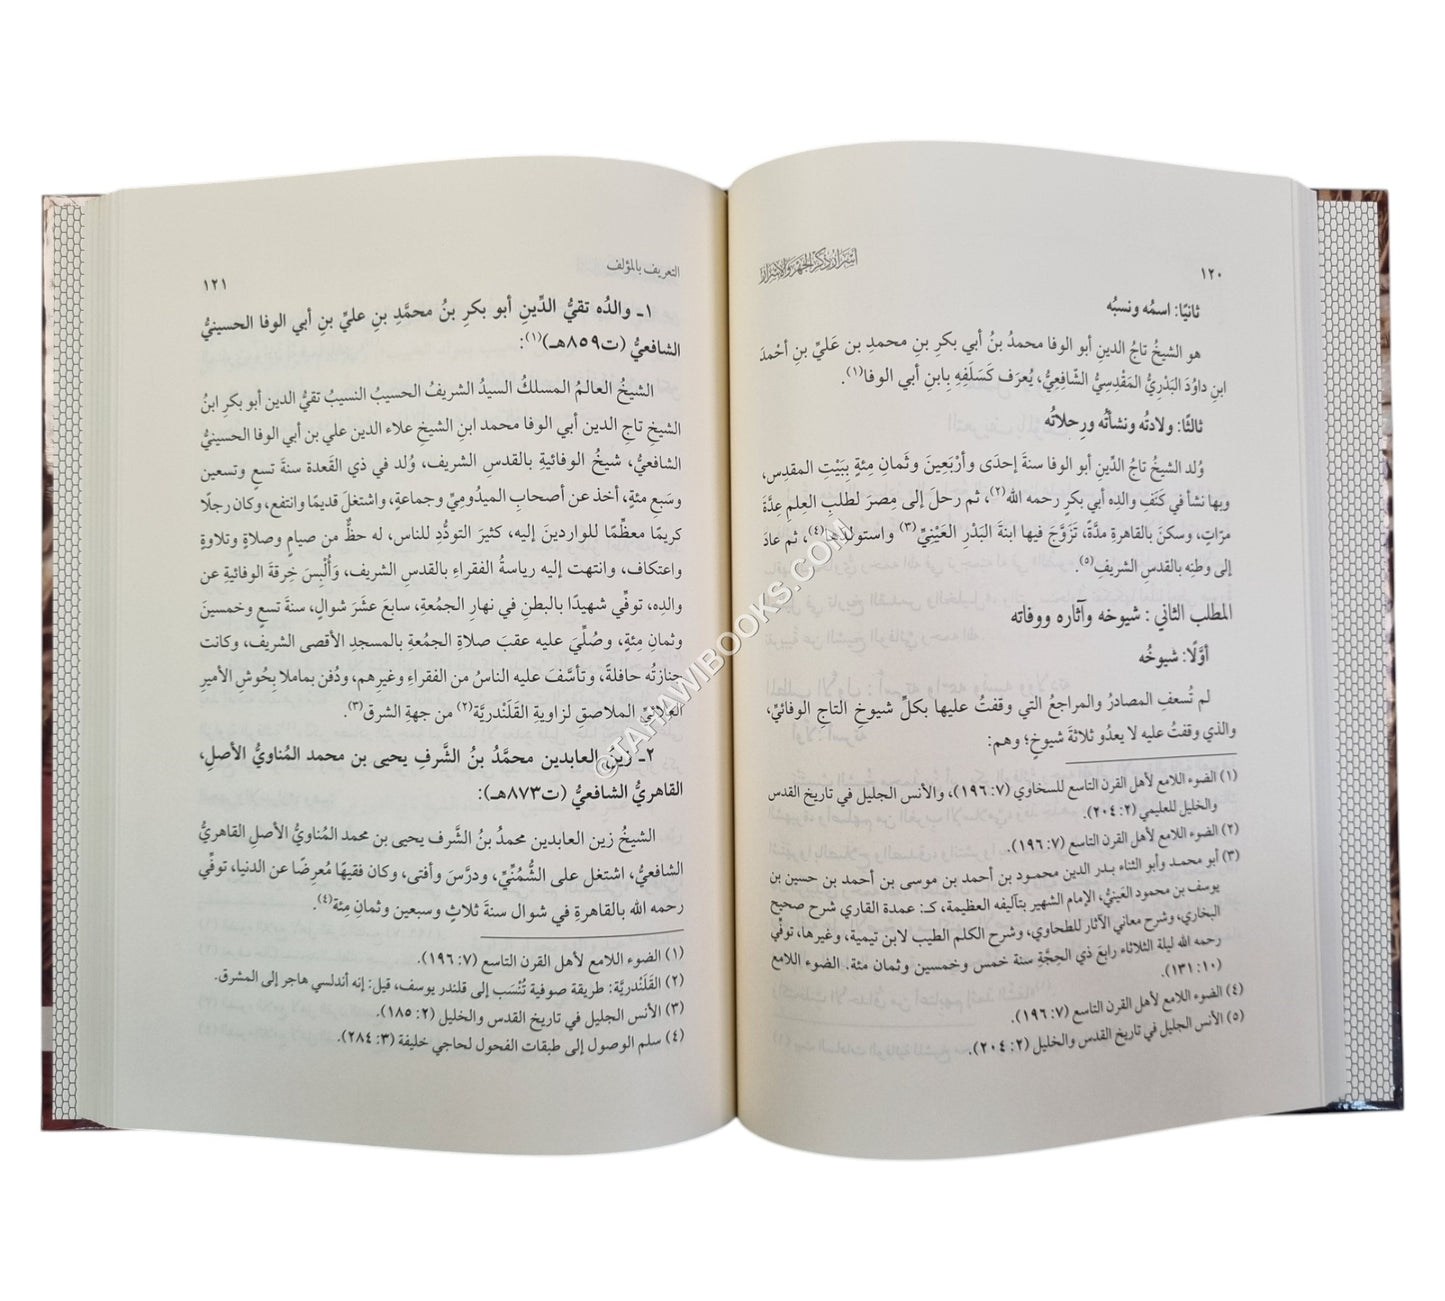 ١٢٠
أسرار ذكر الجهر والإسرار
ثانيًا: اسمُه ونسبُه
هو الشيخُ تاجُ الدينِ أبو الوفا محمدُ بنُ أبي بكرِ بنِ محمدِ بن عَليِّ بنِ أحْمدَ
ابنِ داوُدَ البَدْرِيُّ المَقْدِسِيُّ الشّافِعِيُّ، يُعرَف كَسَلَفِهِ بِابنِ أبي الوفا(١).
ثالثًا: ولادتُه ونشأتُه ورِحلاتُه
وُلد الشيخُ تاجُ الدِّينِ أبو الوفا سنةَ إحْدَى وأرْبَعِينَ وثَمانِ مِئةٍ بِبَيْتِ المقدِسِ،
وبها نشأ في كَنَفِ والدِه أبي بكرٍ رحمه الله(٢)، ثم رحلَ إلى مِصرَ لطلبِ العلمِ عِدَّةَ
مرّاتٍ، وسكنَ بالقاهرةِ مدَّةً، تَزَوَّجَ فيها ابنةَ البَدْرِ العَيْنِيِّ(٣) واستولدَها(٤)، ثم عادَ
إلى وطنِه بالقدس الشريفِ(٥).
المطلب الثاني : شيوخه وآثاره ووفاته
أوَّلًا: شيوخُه
لم تُسعفِ المصادرُ والمراجعُ التي وقفتُ عليها بكلِّ شيوخِ التاجِ الوفائيِّ،
والذي وقفتُ عليه لا يعدُو ثلاثةَ شيوخٍ؛ وهم:
(١) الضوء اللامع لأهل القرن التاسع للسخاوي (٧: ١٩٦)، والأنس الجليل في تاريخ القدس
والخليل للعليمي (٢: ٢٠٤).
(٢) الضوء اللامع لأهل القرن التاسع (٧: ١٩٦).
(٣) أبو محمد وأبو الثناء بدر الدين محمود بن أحمد بن موسى بن أحمد بن حسين بن
يوسف بن محمود العَينيُّ، الإمام الشهير بتآليفه العظيمة، كـ: عمدة القاري شرح صحيح
البخاري، وشرح معاني الآثار للطحاوي، وشرح الكلم الطيب لابن تيمية، وغيرها، توفّي
رحمه الله ليلة الثلاثاء رابعَ ذي الحِجَّةِ سنة خمس وخمسين وثمان مئة. الضوء اللامع
(١٠: ١٣١).
(٤) الضوء اللامع لأهل القرن التاسع (٧: ١٩٦).
(٥) الأنس الجليل في تاريخ القدس والخليل (٢: ٢٠٤).
التعريف بالمؤلف
١٢١
١ـ والدُه تقيُّ الدِّينِ أبو بكرِ بنُ محمَّدِ بنِ عليِّ بنِ أبي الوفا الحسينيُّ
الشافعيُّ (ت٨٥٩هـ)(١):
الشيخُ العالمُ المسلكُ السيدُ الشريفُ الحسيبُ النسيبُ تقيُّ الدين أبو بكرِ ابنُ
الشيخِ تاجِ الدين أبي الوفا محمد ابنِ الشيخِ علاء الدين علي بن أبي الوفا الحسينيُّ
الشافعيُّ، شيخُ الوفائيةِ بالقدس الشريف، وُلد في ذي القَعدة سنةَ تسعٍ وتسعين
وسَبعِ مئةٍ، أخذ عن أصحابِ الميدُوميِّ وجماعةٍ، واشتغلَ قديمًا وانتفع، وكان رجلًا
كريمًا معظِّمًا للواردينَ إليه، كثيرَ التودُّدِ للناس، له حظٌّ من صيامٍ وصلاةٍ وتلاوةٍ
واعتكاف، وانتهت إليه رياسةُ الفقراءِ بالقدس الشريف، وَأُلْبِسَ خِرقةَ الوفائيةِ عن
والدِه، توفِّي شهيدًا بالبطنِ في نهارِ الجمُعةِ، سابعَ عشَرَ شوالٍ، سنةَ تسعٍ وخمسينَ
وثمانِ مِئةٍ، وصُلِّيَ عليه عقبَ صلاةِ الجمُعةِ بالمسجدِ الأقصى الشريف، وكانت
جنازتُه حافلةً، وتأسَّفَ عليه الناسُ من الفقراءِ وغيرِهم، ودُفن بماملا بِحُوشِ الأميرِ
العلائيِّ الملاصقِ لزاويةِ القَلَنْدريَّة(٢) من جهةِ الشرق(٣).
٢ـ زينُ العابدين محمَّدُ بنُ الشَّرفِ يحيى بن محمد المُناويُّ الأصلِ،
القاهريُّ الشافعيُّ (ت٨٧٣هـ):
الشيخُ زين العابدين محمدُ بنُ الشَّرفِ يحيى بن محمد المُناويُّ الأصلِ القاهريُّ
الشافعيُّ، اشتغل على الشُّمُنِّيِّ، ودرَّسَ وأفتى، وكان فقيهًا مُعرِضًا عن الدنيا، توفِّي
رحمه الله بالقاهرةِ في شوال سنةَ ثلاثٍ وسبعين وثمانِ مِئة(٤).
(١) الضوء اللامع لأهل القرن التاسع (٧: ١٩٦).
(٢) القَلَنْدريَّة: طريقة صوفية تُنْسَب إلى قلندر يوسف، قيل: إنه أندلسي هاجر إلى المشرق.
(٣) الأنس الجليل في تاريخ القدس والخليل (٢: ١٨٥).
(٤) سلم الوصول إلى طبقات الفحول لحاجي خليفة (٣: ٢٨٤).
©TAHAWIBOOKS.COM